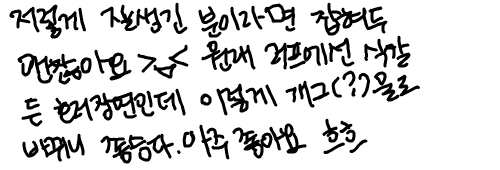 저렇게 잘생긴 분이라면 잡혀두
괜찮아요 >_< 원래 러프에선 식칼
든 호러장면인데 이렇게 개그(?)물로
바뀌니 좋습니다. 아주 좋아요 흐흐